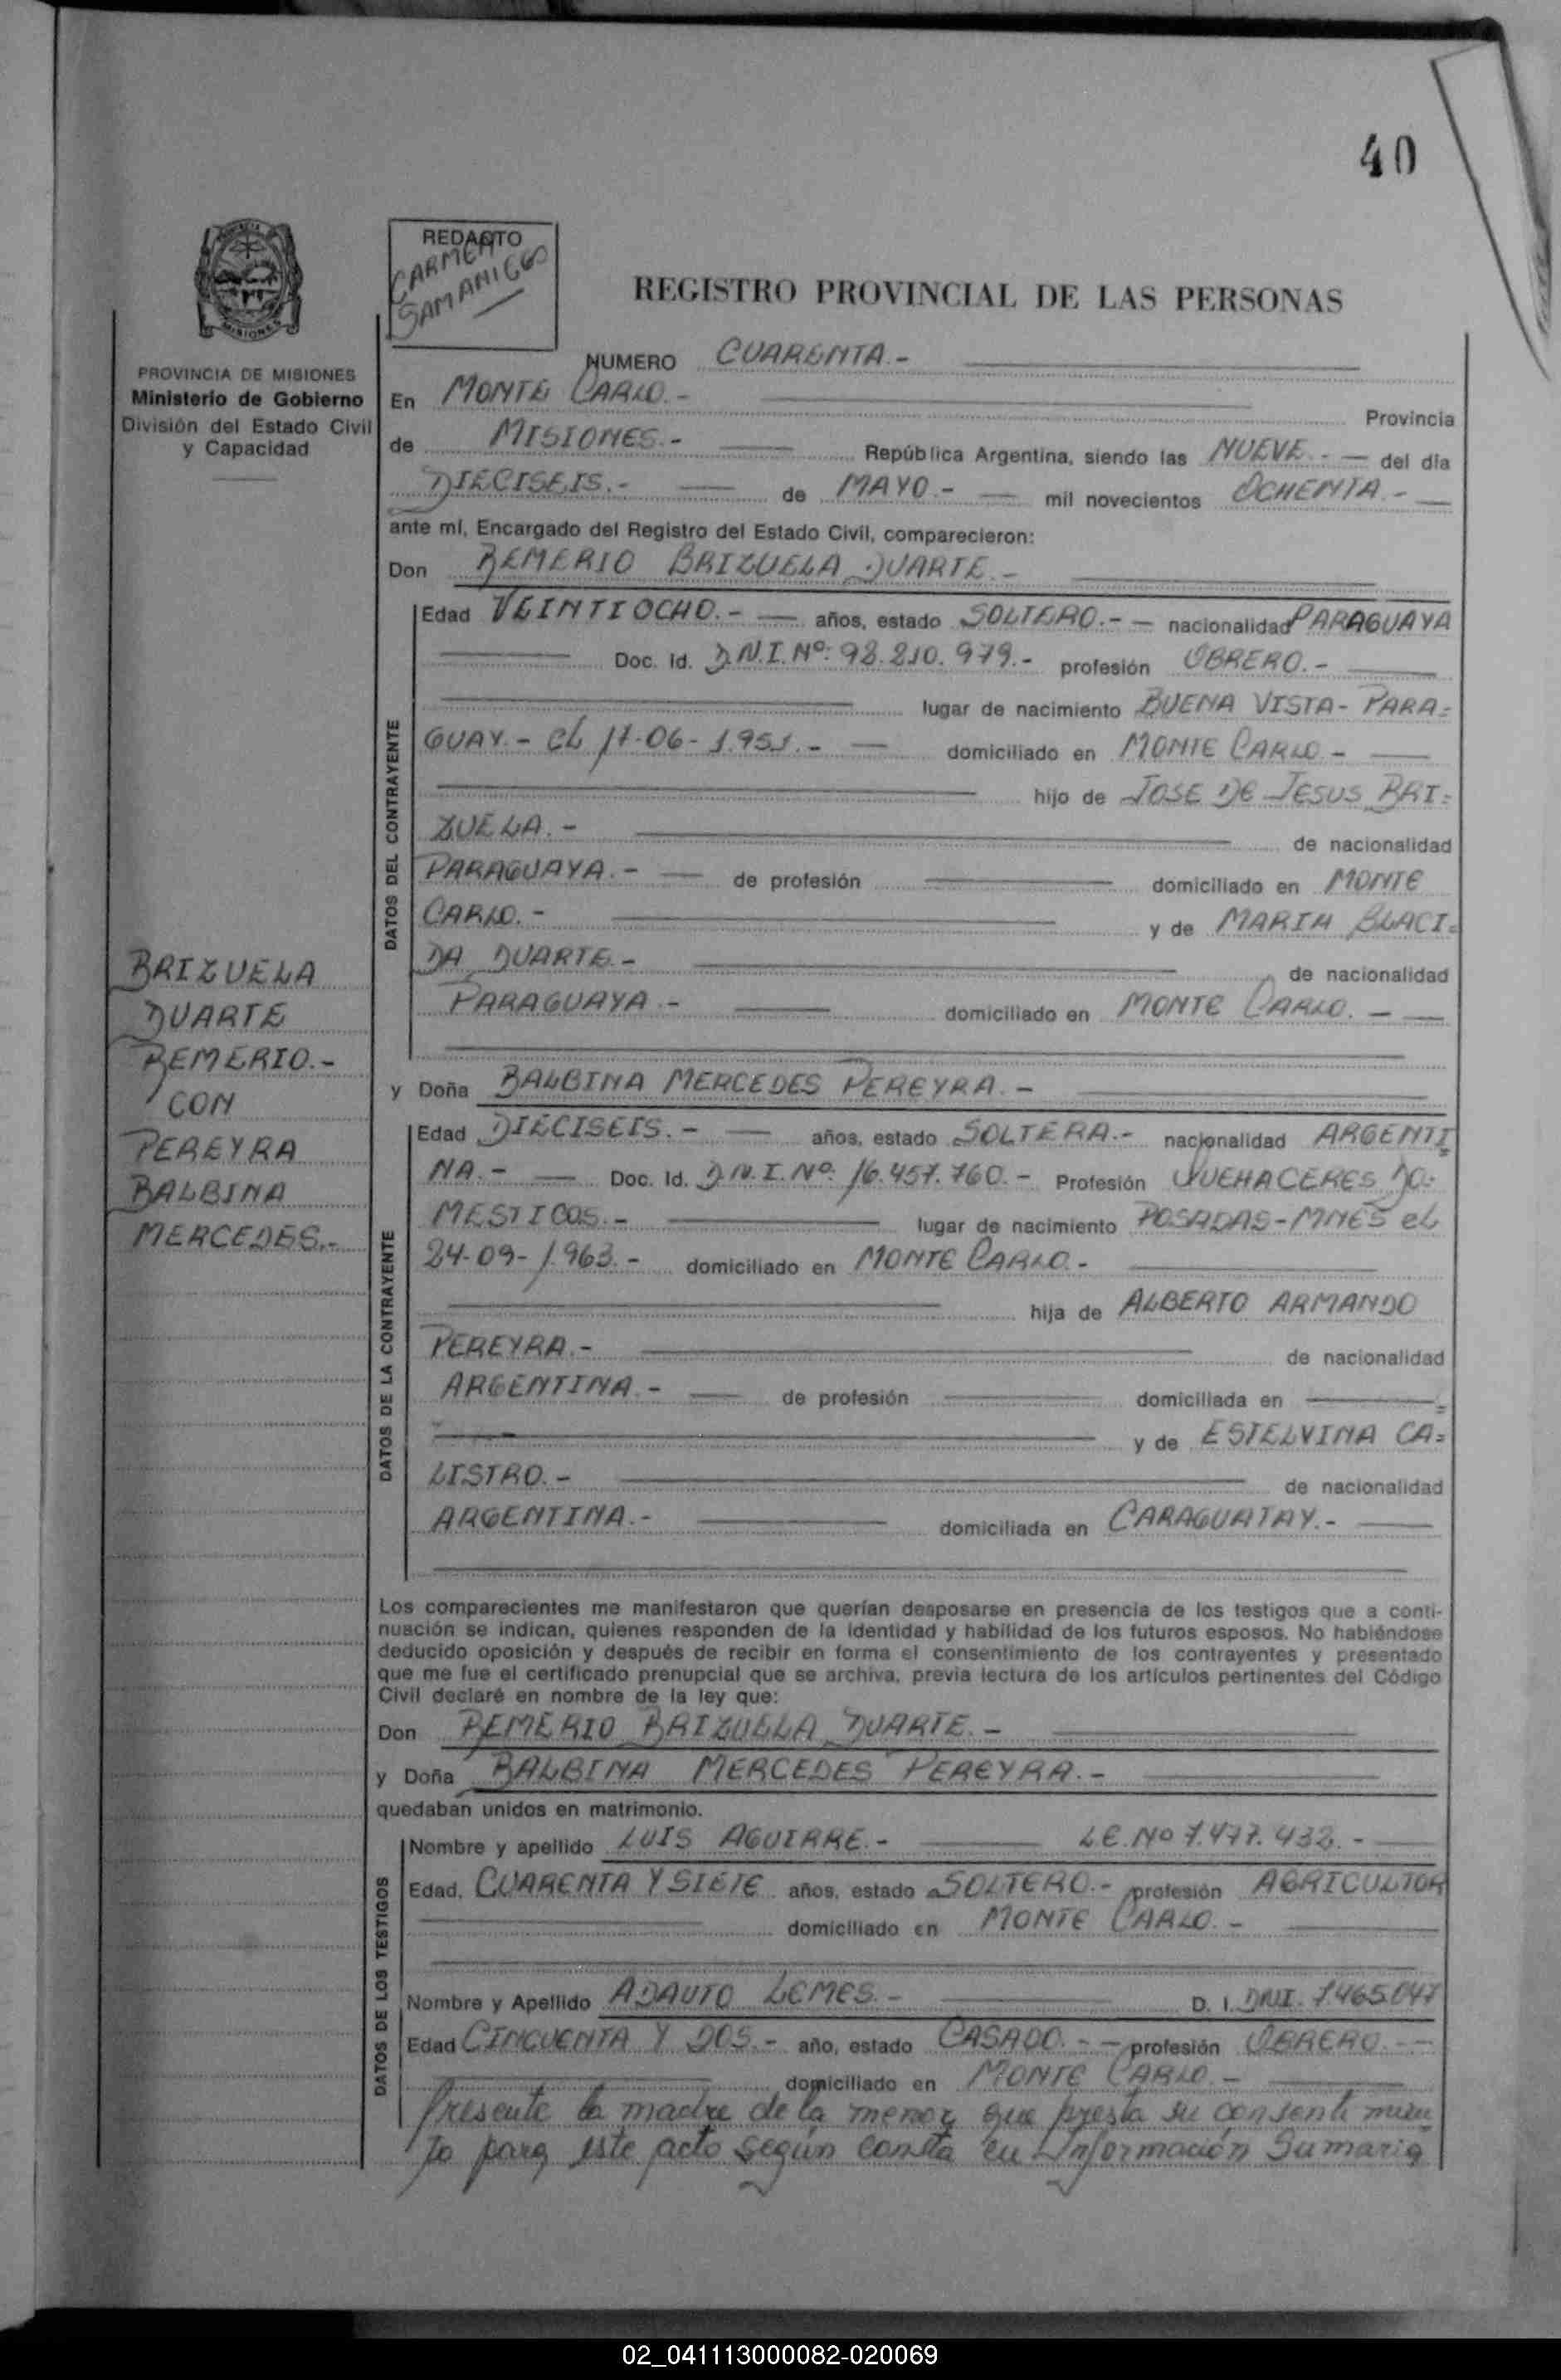 40
REDACTO
CARMEN
SAMANIEGO
REGISTRO PROVINCIAL DE LAS PERSONAS
PROVINCIA DE MISIONES
Ministerio de Gobierno
División del Estado Civil
y Capacidad
NUMERO CUARENTA.-
En MONTE CARLO.- Provincia
de MISIONES.- República Argentina, siendo las NUEVE.- del día
DIECISEIS.- de MAYO.- mil novecientos OCHENTA.-
ante mí, Encargado del Registro del Estado Civil, comparecieron:
Don REMERIO BRIZUELA DUARTE.-
Edad VEINTIOCHO.- años, estado SOLTERO.- nacionalidad PARAGUAYA
Doc. Id. D.N.I. Nº: 92.210.979.- profesión OBRERO.-
lugar de nacimiento BUENA VISTA- PARA=
GUAY.- EL 17-06-1.951.- domiciliado en MONTE CARLO.-
hijo de JOSE DE JESUS BRI=
ZUELA.- de nacionalidad
PARAGUAYA.- de profesión domiciliado en MONTE
CARLO.- y de MARIA BLACI=
DA DUARTE.- de nacionalidad
PARAGUAYA.- domiciliado en MONTE CARLO.-
y Doña BALBINA MERCEDES PEREYRA.-
Edad DIECISEIS.- años, estado SOLTERA.- nacionalidad ARGENTI=
NA.- Doc. Id. D.N.I. Nº: 16.457.760.- Profesión QUEHACERES DO=
MESTICOS.- lugar de nacimiento POSADAS-MNES EL
24-09-1.963.- domiciliado en MONTE CARLO.-
hija de ALBERTO ARMANDO
PEREYRA.- de nacionalidad
ARGENTINA.- de profesión domiciliada en
y de ESTELVINA CA=
LISTRO.- de nacionalidad
ARGENTINA.- domiciliada en CARAGUATAY.-
Los comparecientes me manifestaron que querían desposarse en presencia de los testigos que a conti-
nuación se indican, quienes responden de la identidad y habilidad de los futuros esposos. No habiéndose
deducido oposición y después de recibir en forma el consentimiento de los contrayentes y presentado
que me fue el certificado prenupcial que se archiva, previa lectura de los artículos pertinentes del Código
Civil declaré en nombre de la ley que:
Don REMERIO BRIZUELA DUARTE.-
y Doña BALBINA MERCEDES PEREYRA.-
quedaban unidos en matrimonio.
Nombre y apellido LUIS AGUIRRE.- L.E. Nº 7.477.432.-
Edad. CUARENTA Y SIETE años, estado SOLTERO.- profesión AGRICULTOR
domiciliado en MONTE CARLO.-
Nombre y Apellido ADAUTO LEMES.- D. I. DNI. 7465.047
Edad CINCUENTA Y DOS.- año, estado CASADO.- profesión OBRERO.-
domiciliado en MONTE CARLO.-
Presente la madre de la menor que presta su consentimien
to para este acto según consta en Información Sumaria
DATOS DEL CONTRAYENTE
DATOS DE LA CONTRAYENTE
DATOS DE LOS TESTIGOS
BRIZUELA
DUARTE
REMERIO.-
CON
PEREYRA
BALBINA
MERCEDES.-
02_041113000082-020069